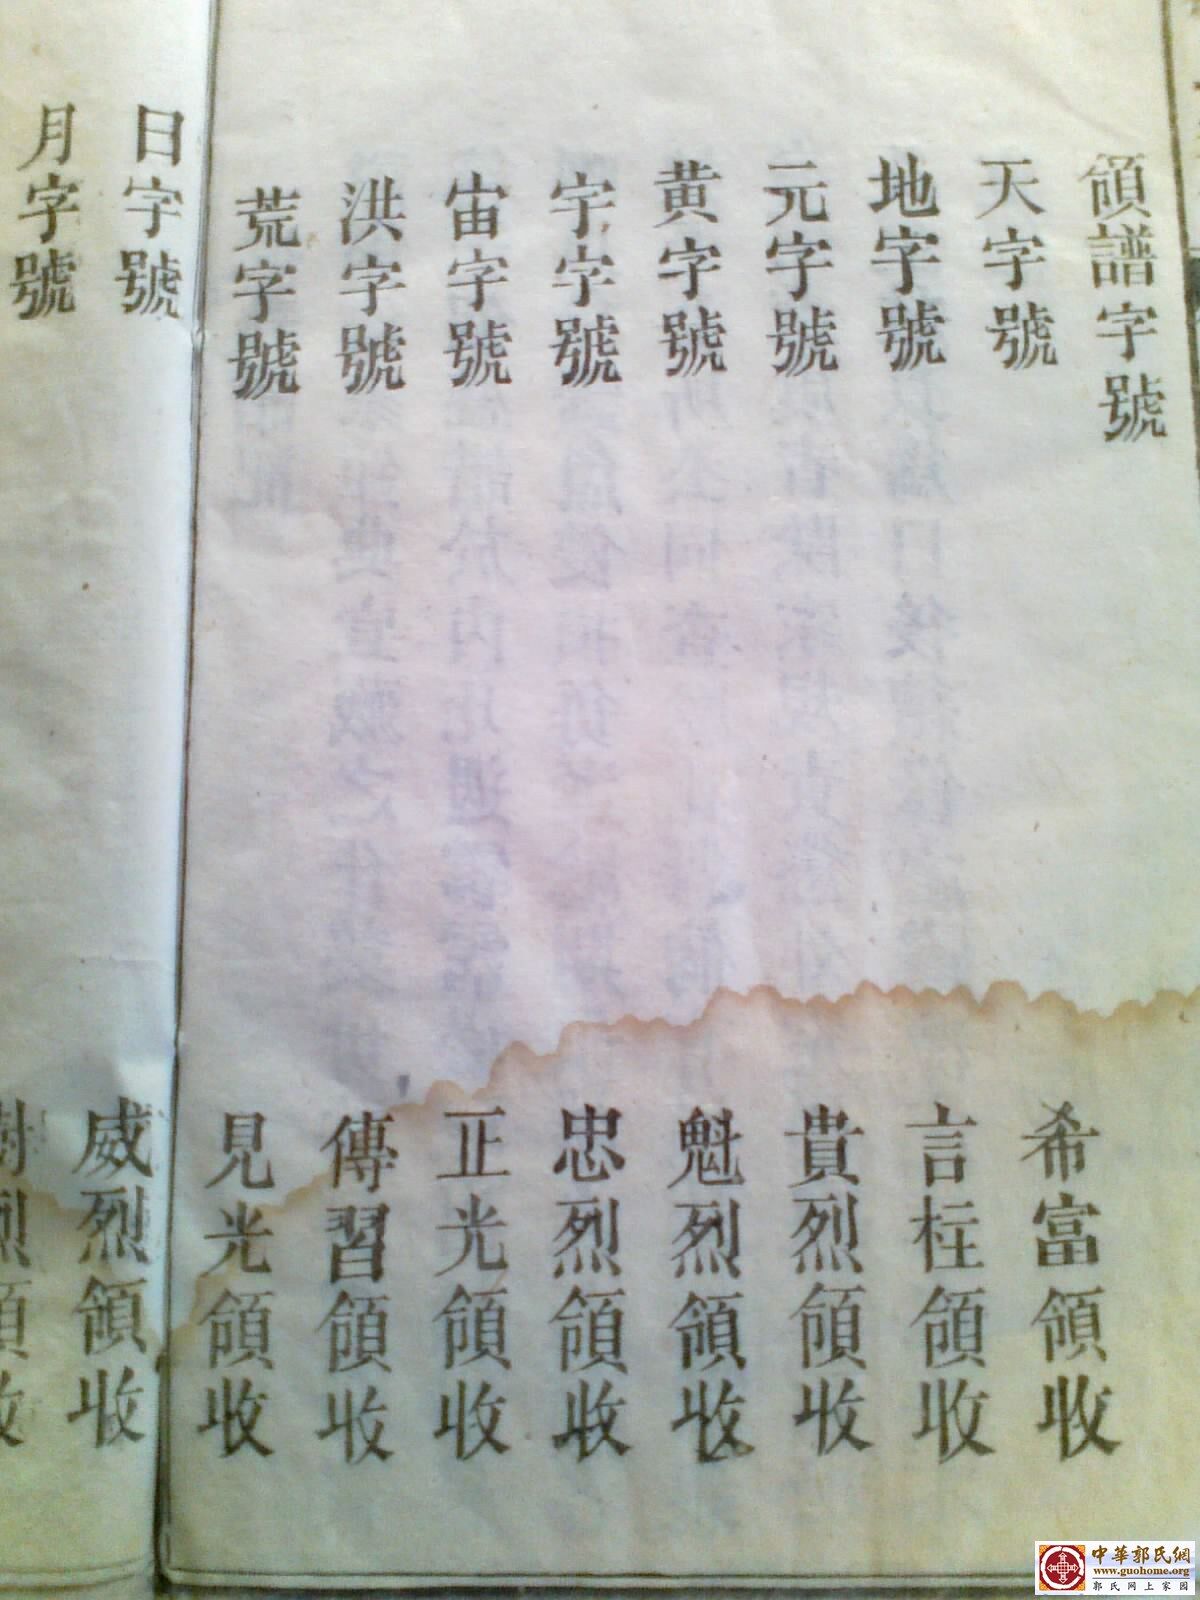 領譜字號
天字號 希富領收
地字號 言柱領收
元字號 貴烈領收
黄字號 魁烈領收
宇字號 忠烈領收
宙字號 正光領收
洪字號 傳習領收
荒字號 見光領收
日字號 威烈領收
月字號 烈領收
中華郭氏網
www.guohome.org
郭氏网上家园